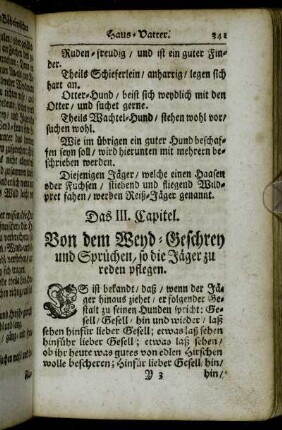 Haus-Vatter. 341
Ruden-freudig / und ist ein guter Fin-
der.
Theils Schieferlein / anharrig / legen sich
hart an.
Otter-Hund / beist sich weydlich mit den
Otter / und suchet gerne.
Theils Wachtel-Hund / stehen wohl vor /
suchen wohl.
Wie im übrigen ein guter Hund beschaf-
fen seyn soll / wird hierunten mit mehrern be-
schrieben werden.
Diejenigen Jäger / welche einen Haasen
oder Füchsen / stiebend und fliegend Wild-
pret fahen / werden Reiß-Jäger genannt.
Das III. Capitel.
Von dem Weyd-Geschrey
und Sprüchen / so die Jäger zu
reden pflegen.
ES ist bekandt / daß / wenn der Jä-
ger hinaus ziehet / er folgender Ge-
stalt zu seinen Hunden spricht: Ge-
sell / Gesell / hin und wieder / laß
sehen hinfür lieber Gesell; etwas laß sehen
hinführ lieber Gesell; etwas laß sehen /
ob ihr heute was gutes von edlen Hirschen
wolle bescheren; Hinfür lieber Gesell / hin /
Y 3 hin /